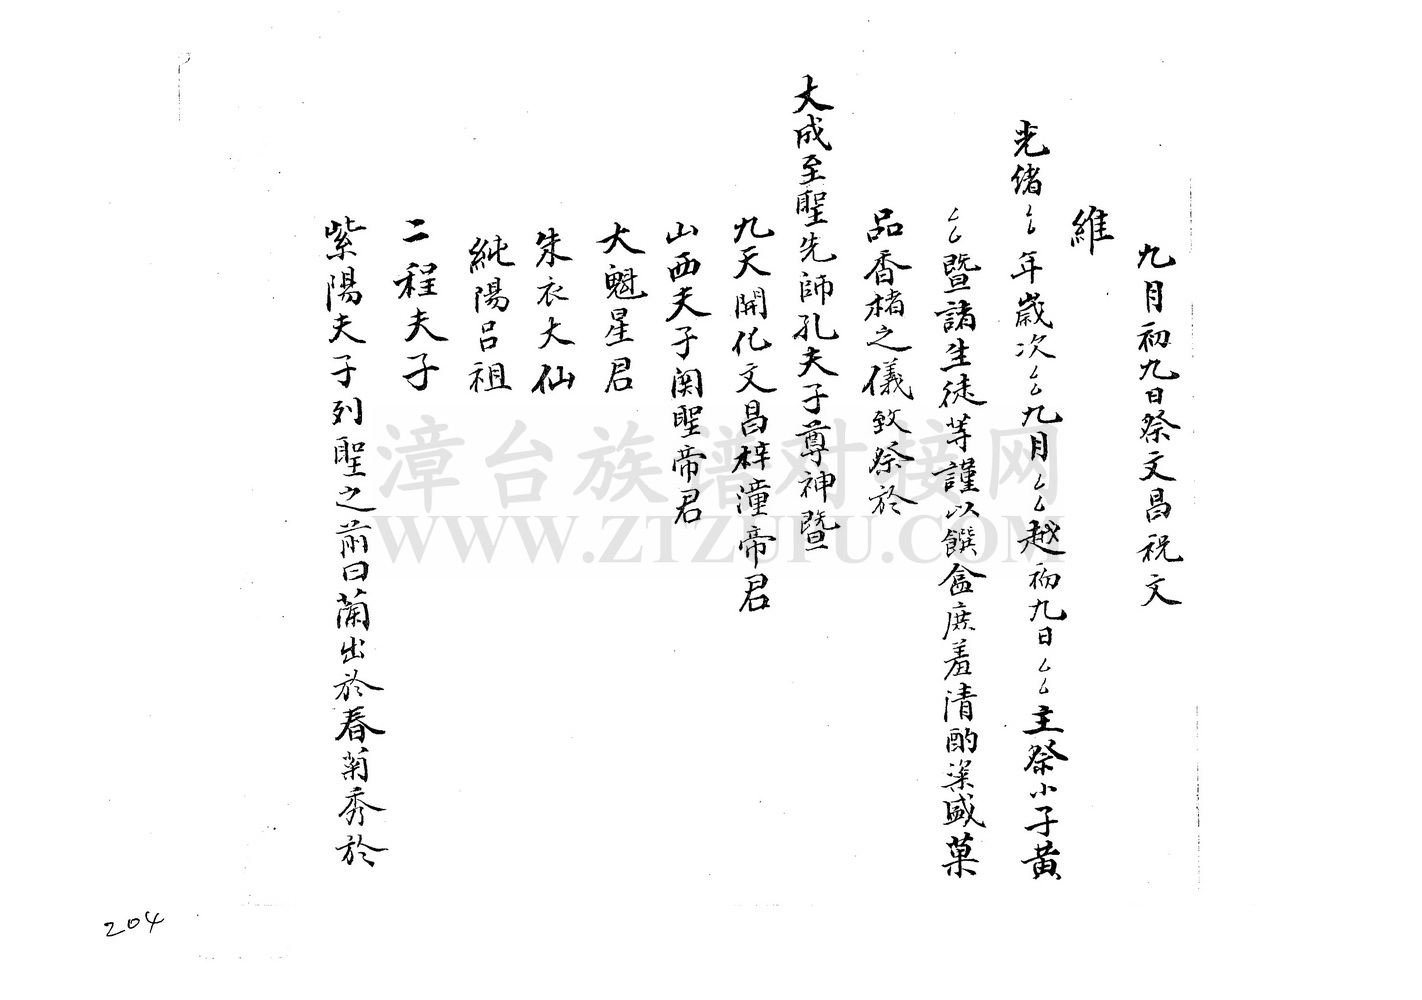 九月初九日祭文昌祝文
維
光緒厶厶年歲次厶厶九月厶厶越初九日厶厶主祭小子黃
厶厶暨諸生徒等謹以饌盒庶羞清酌粢盛菓
品香楮之儀致祭於
大成至聖先師孔夫子尊神暨
九天開化文昌梓潼帝君
山西夫子関聖帝君
大魁星君
朱衣大仙
純陽呂祖
二程夫子
紫陽夫子列聖之前曰蘭出於春菊秀於
漳台族谱对接网
WWW.ZTZUPU.COM
204